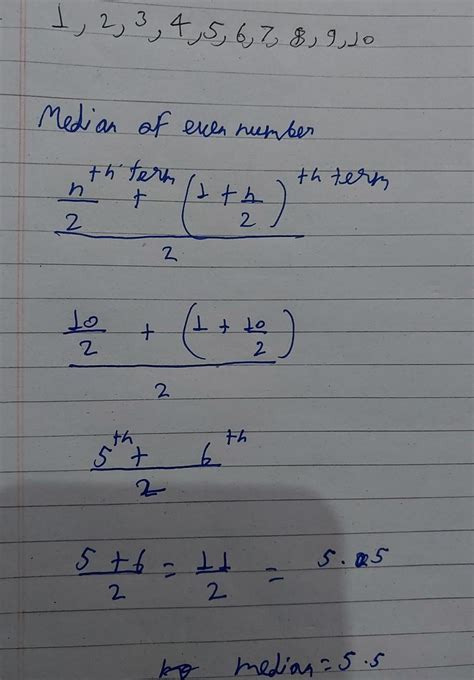 1, 2, 3, 4, 5, 6, 7, 8, 9, 10
Median of even number
n/2 th term + (1 + n/2) th term
2
10/2 + (1 + 10/2)
2
5th + 6th
2
5 + 6 / 2 = 11 / 2 = 5.5
median = 5.5